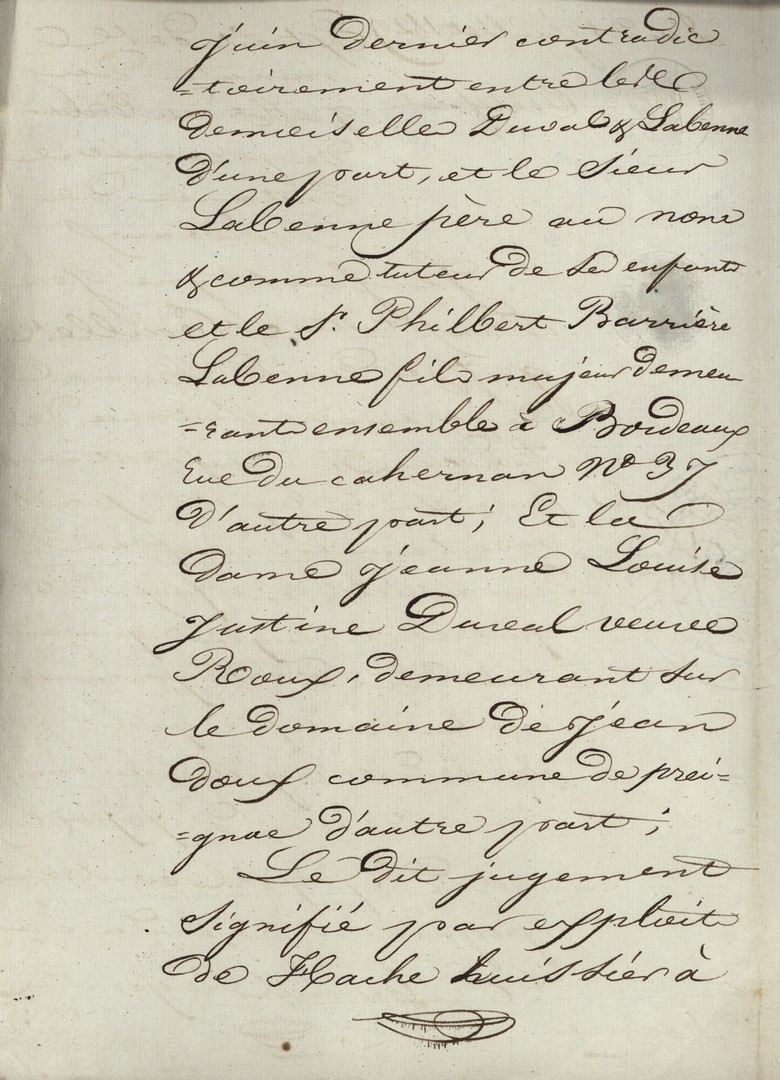 juin dernier contradic
=toirement entre lad.
demoiselle Duval & Labenne
d'une part, et le Sieur
Labenne père au nom
& comme tuteur de ses enfants
et le Sr. Philbert Barrière
Labenne fils majeur demeu
=rant ensemble à Bordeaux
rue du cahernan No 37
D'autre part; Et la
Dame Jeanne Louise
Justine Dureal veuve
Roux, demeurant sur
le domaine de Jean
doux commune de prei=
=gnac d'autre part;
Le dit jugement
signifié par exploit
de Hache huissier à